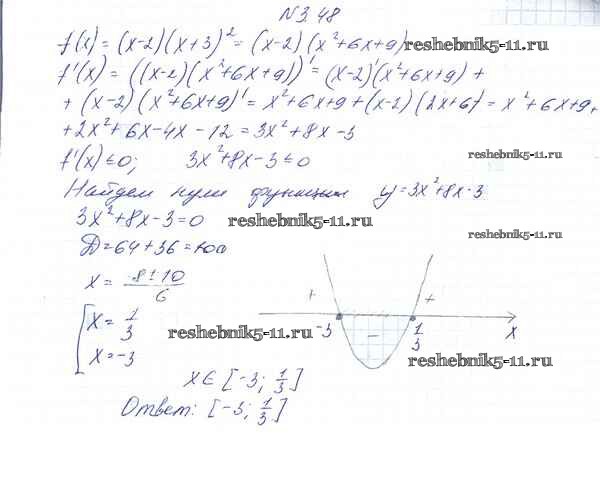 №3.48
f(x) = (x-2)(x+3)² = (x-2)(x²+6x+9) reshebnik5-11.ru
f'(x) = ((x-2)(x²+6x+9))' = (x-2)'(x²+6x+9) +
+ (x-2)(x²+6x+9)' = x²+6x+9+(x-2)(2x+6) = x²+6x+9+
+2x²+6x-4x-12=3x²+8x-3
reshebnik5-11.ru
f'(x)≤0; 3x²+8x-3≤0
Найдем нули функции y=3x²+8x-3
3x²+8x-3=0 reshebnik5-11.ru
reshebnik5-11.ru
D=64+36=100
x = -8±10
6
+ +
x = 1
3
-3 - 1
3 x
reshebnik5-11.ru reshebnik5-11.ru
x=-3
x∈[-3; 1/3]
Ответ: [-3; 1/3]